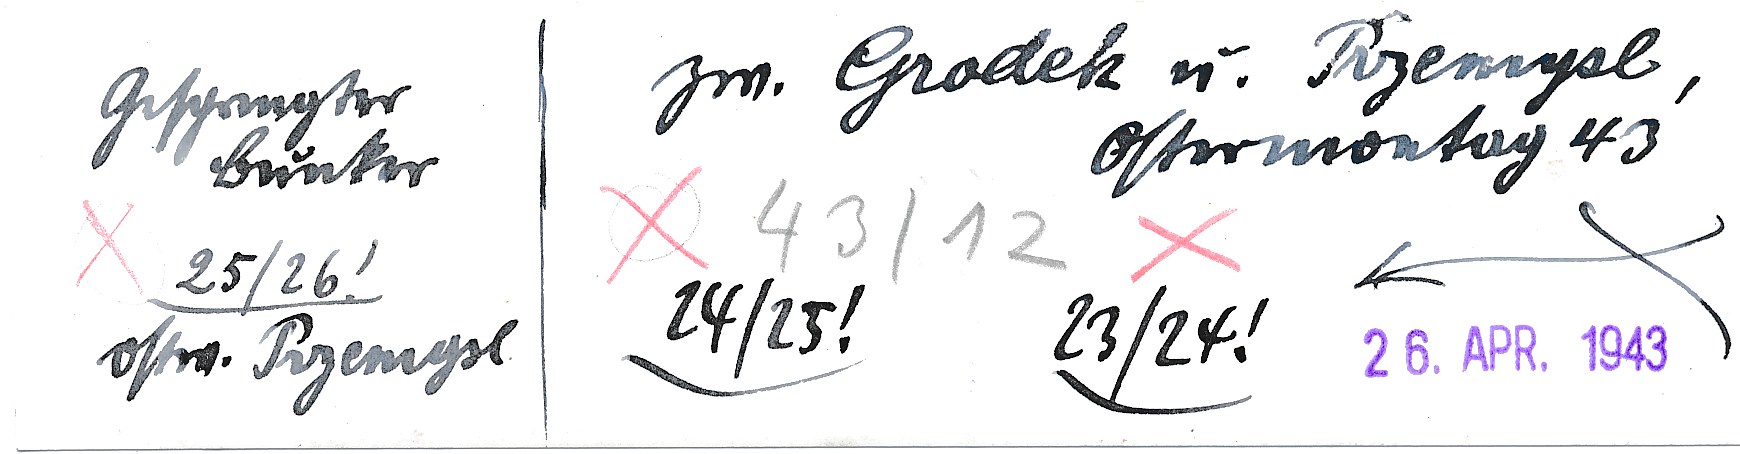 Gesprengter
Bunker
25/26!
ostw. Przemysl
zw. Grodek u. Przemysl,
Ostermontag 43
43/12
24/25!
23/24!
26. APR. 1943